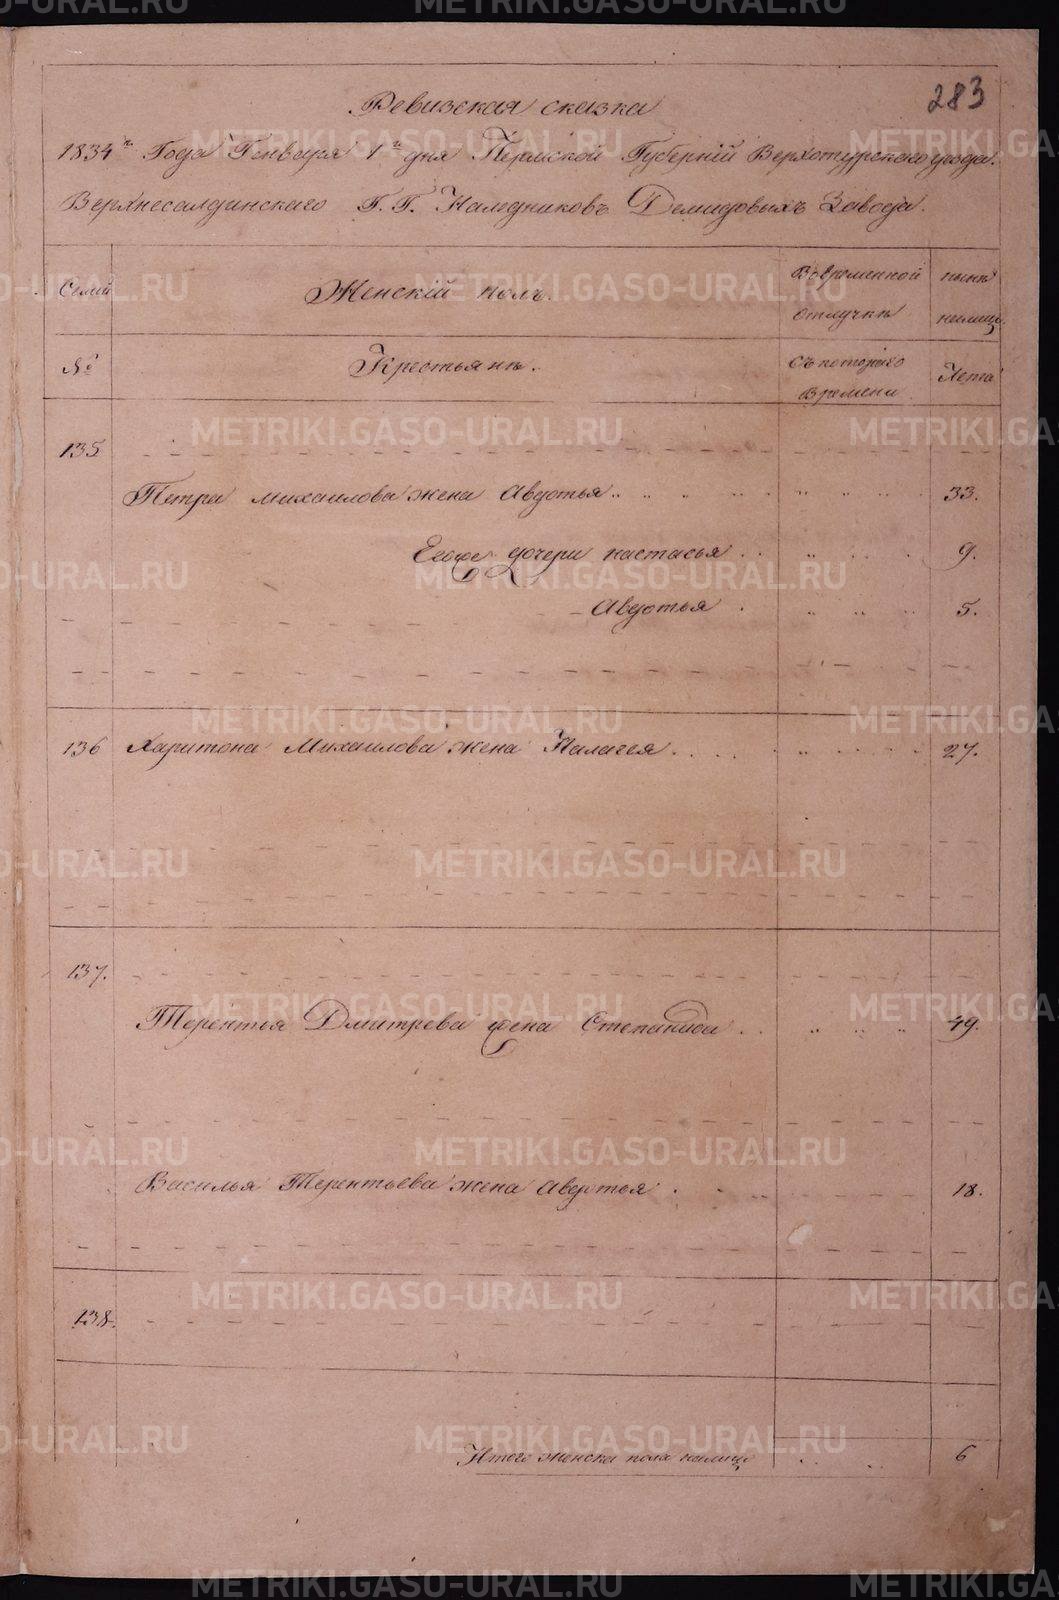 283
Ревизская сказка
1834го Года Генваря 1го дня Пермской Губерній Верхотурскаго уезда.
Верхнесалдинскаго Г.Г. Наледниковъ Демидовыхъ Завода.
Семьи
Женскій полъ.
Во временной отлучке
ныне налицо
№
Крестьяне.
Съ котораго времени
Лета
135
Петра михаилова жена Авдотья 33.
Егоже дочери настасья 9.
Авдотья 5.
136 Харитона Михаилова жена Палагея 27.
137.
Терентья Дмитрева жена Степанида 49.
Василья Терентьева жена Авдотья 18.
138.
Итого женска пола налицо 6
METRIKI.GASO-URAL.RU